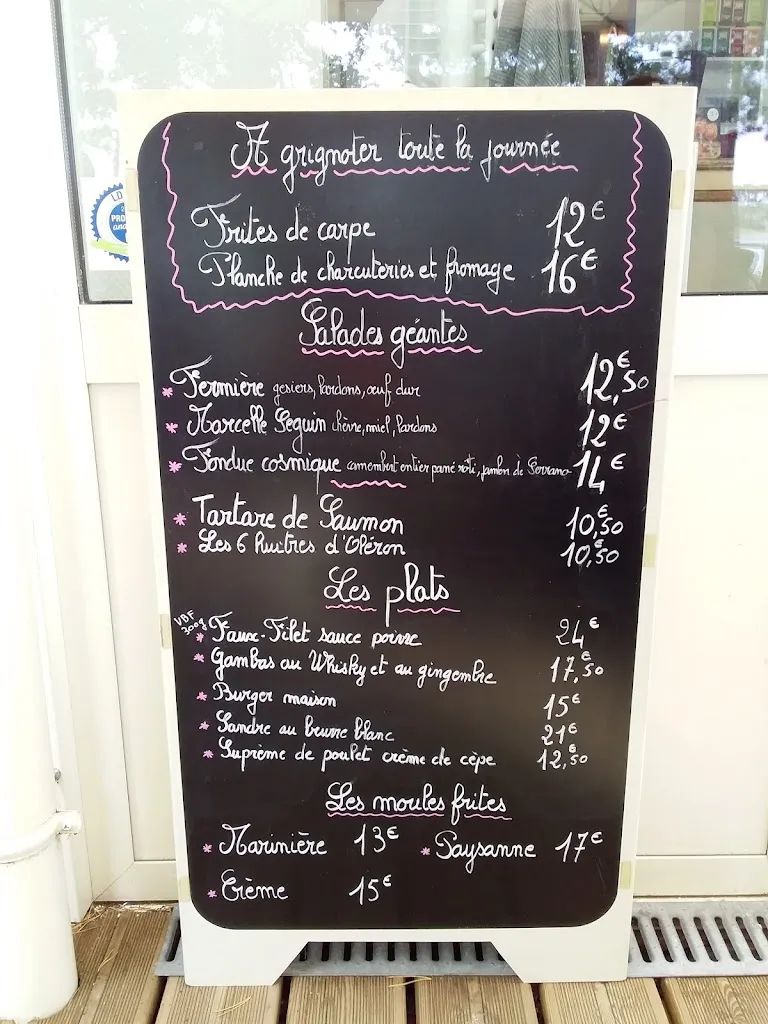 A grignoter toute la journée
Frites de carpe 12€
Planche de charcuteries et fromage 16€
Salades géantes
* Fermière gesiers, lardons, œuf dur 12,50€
* Marcelle Seguin chèvre, miel, lardons 12€
* Fondue cosmique camembert entier pané rôti, jambon de Serrano 14€
* Tartare de Saumon 10,50€
* Les 6 Huitres d'Oléron 10,50€
Les plats
VBF
300g
* Faux-Filet sauce poivre 24€
* Gambas au Whisky et au gingembre 17,50€
* Burger maison 15€
* Sandre au beurre blanc 21€
* Suprème de poulet crème de cèpe 12,50€
Les moules frites
* Marinière 13€ * Paysanne 17€
* Crème 15€